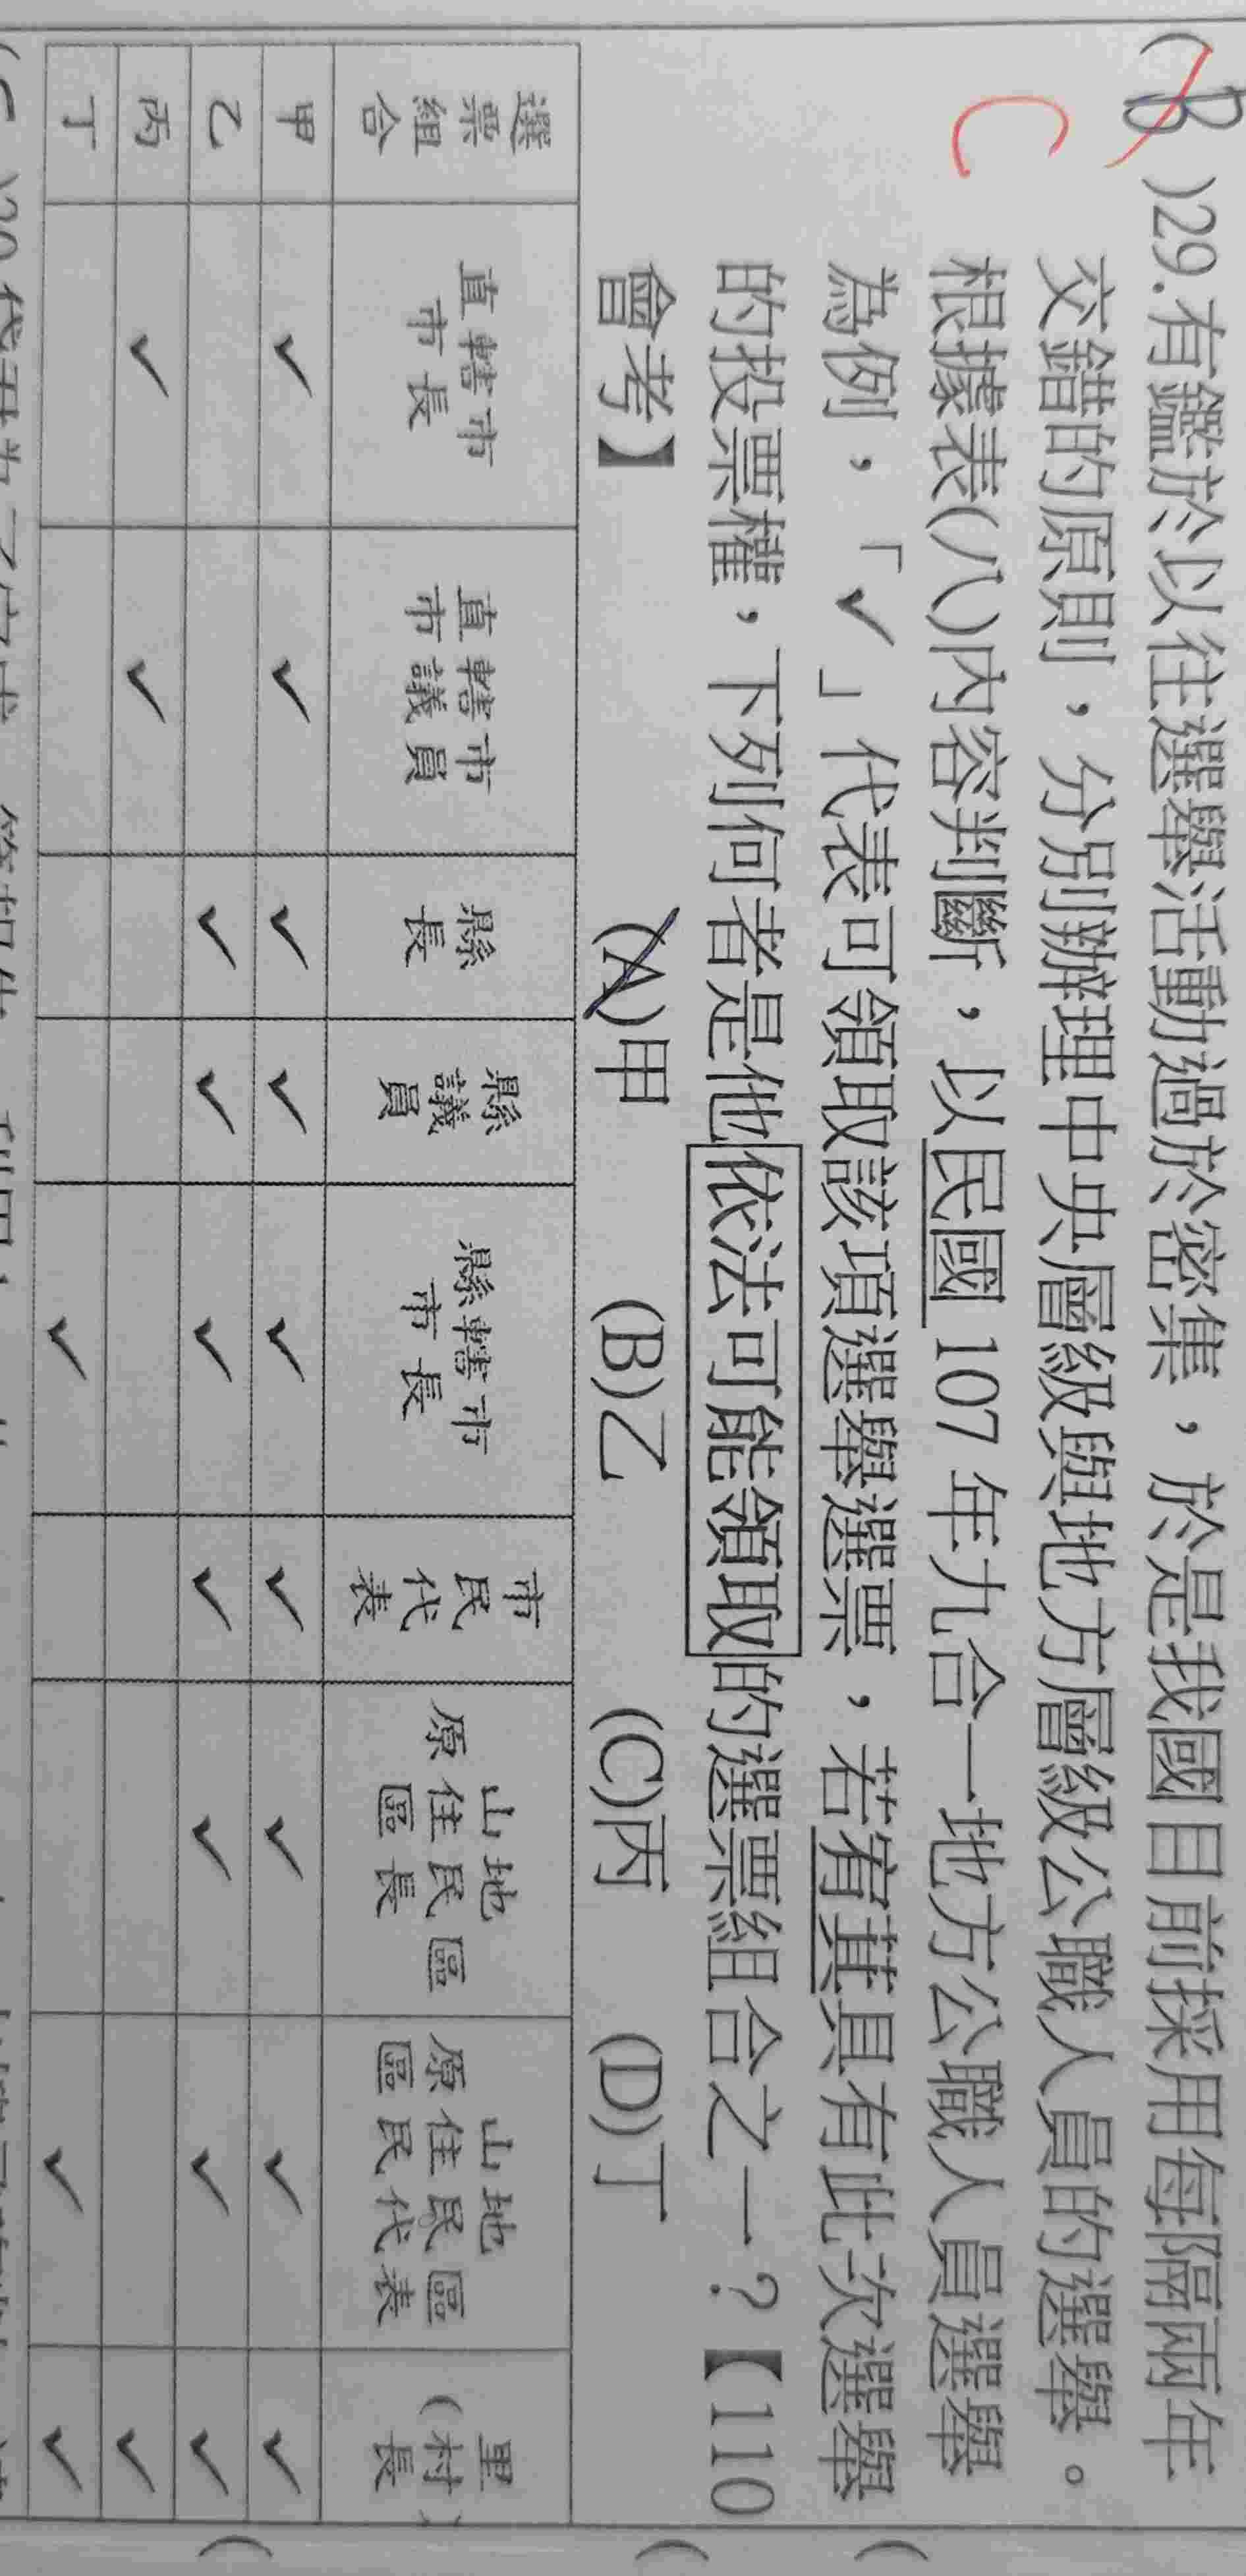 (B)29.有鑑於以往選舉活動過於密集，於是我國目前採用每隔兩年
C
交錯的原則，分別辦理中央層級與地方層級公職人員的選舉。
根據表(八)內容判斷，以民國 107 年九合一地方公職人員選舉
為例，「✓」代表可領取該項選舉選票，若宥其具有此次選舉
的投票權，下列何者是他依法可能領取的選票組合之一？【110
會考】 (A)甲 (B)乙 (C)丙 (D)丁
選票組合 直轄市市長 直轄市議員 縣長 縣議員 縣轄市市長 市民代表 山地原住民區區長 山地原住民區區民代表 里(村)長
甲 ✓ ✓ ✓ ✓ ✓ ✓ ✓ ✓ ✓
乙 ✓ ✓ ✓ ✓ ✓ ✓ ✓
丙 ✓ ✓ ✓
丁 ✓ ✓ ✓